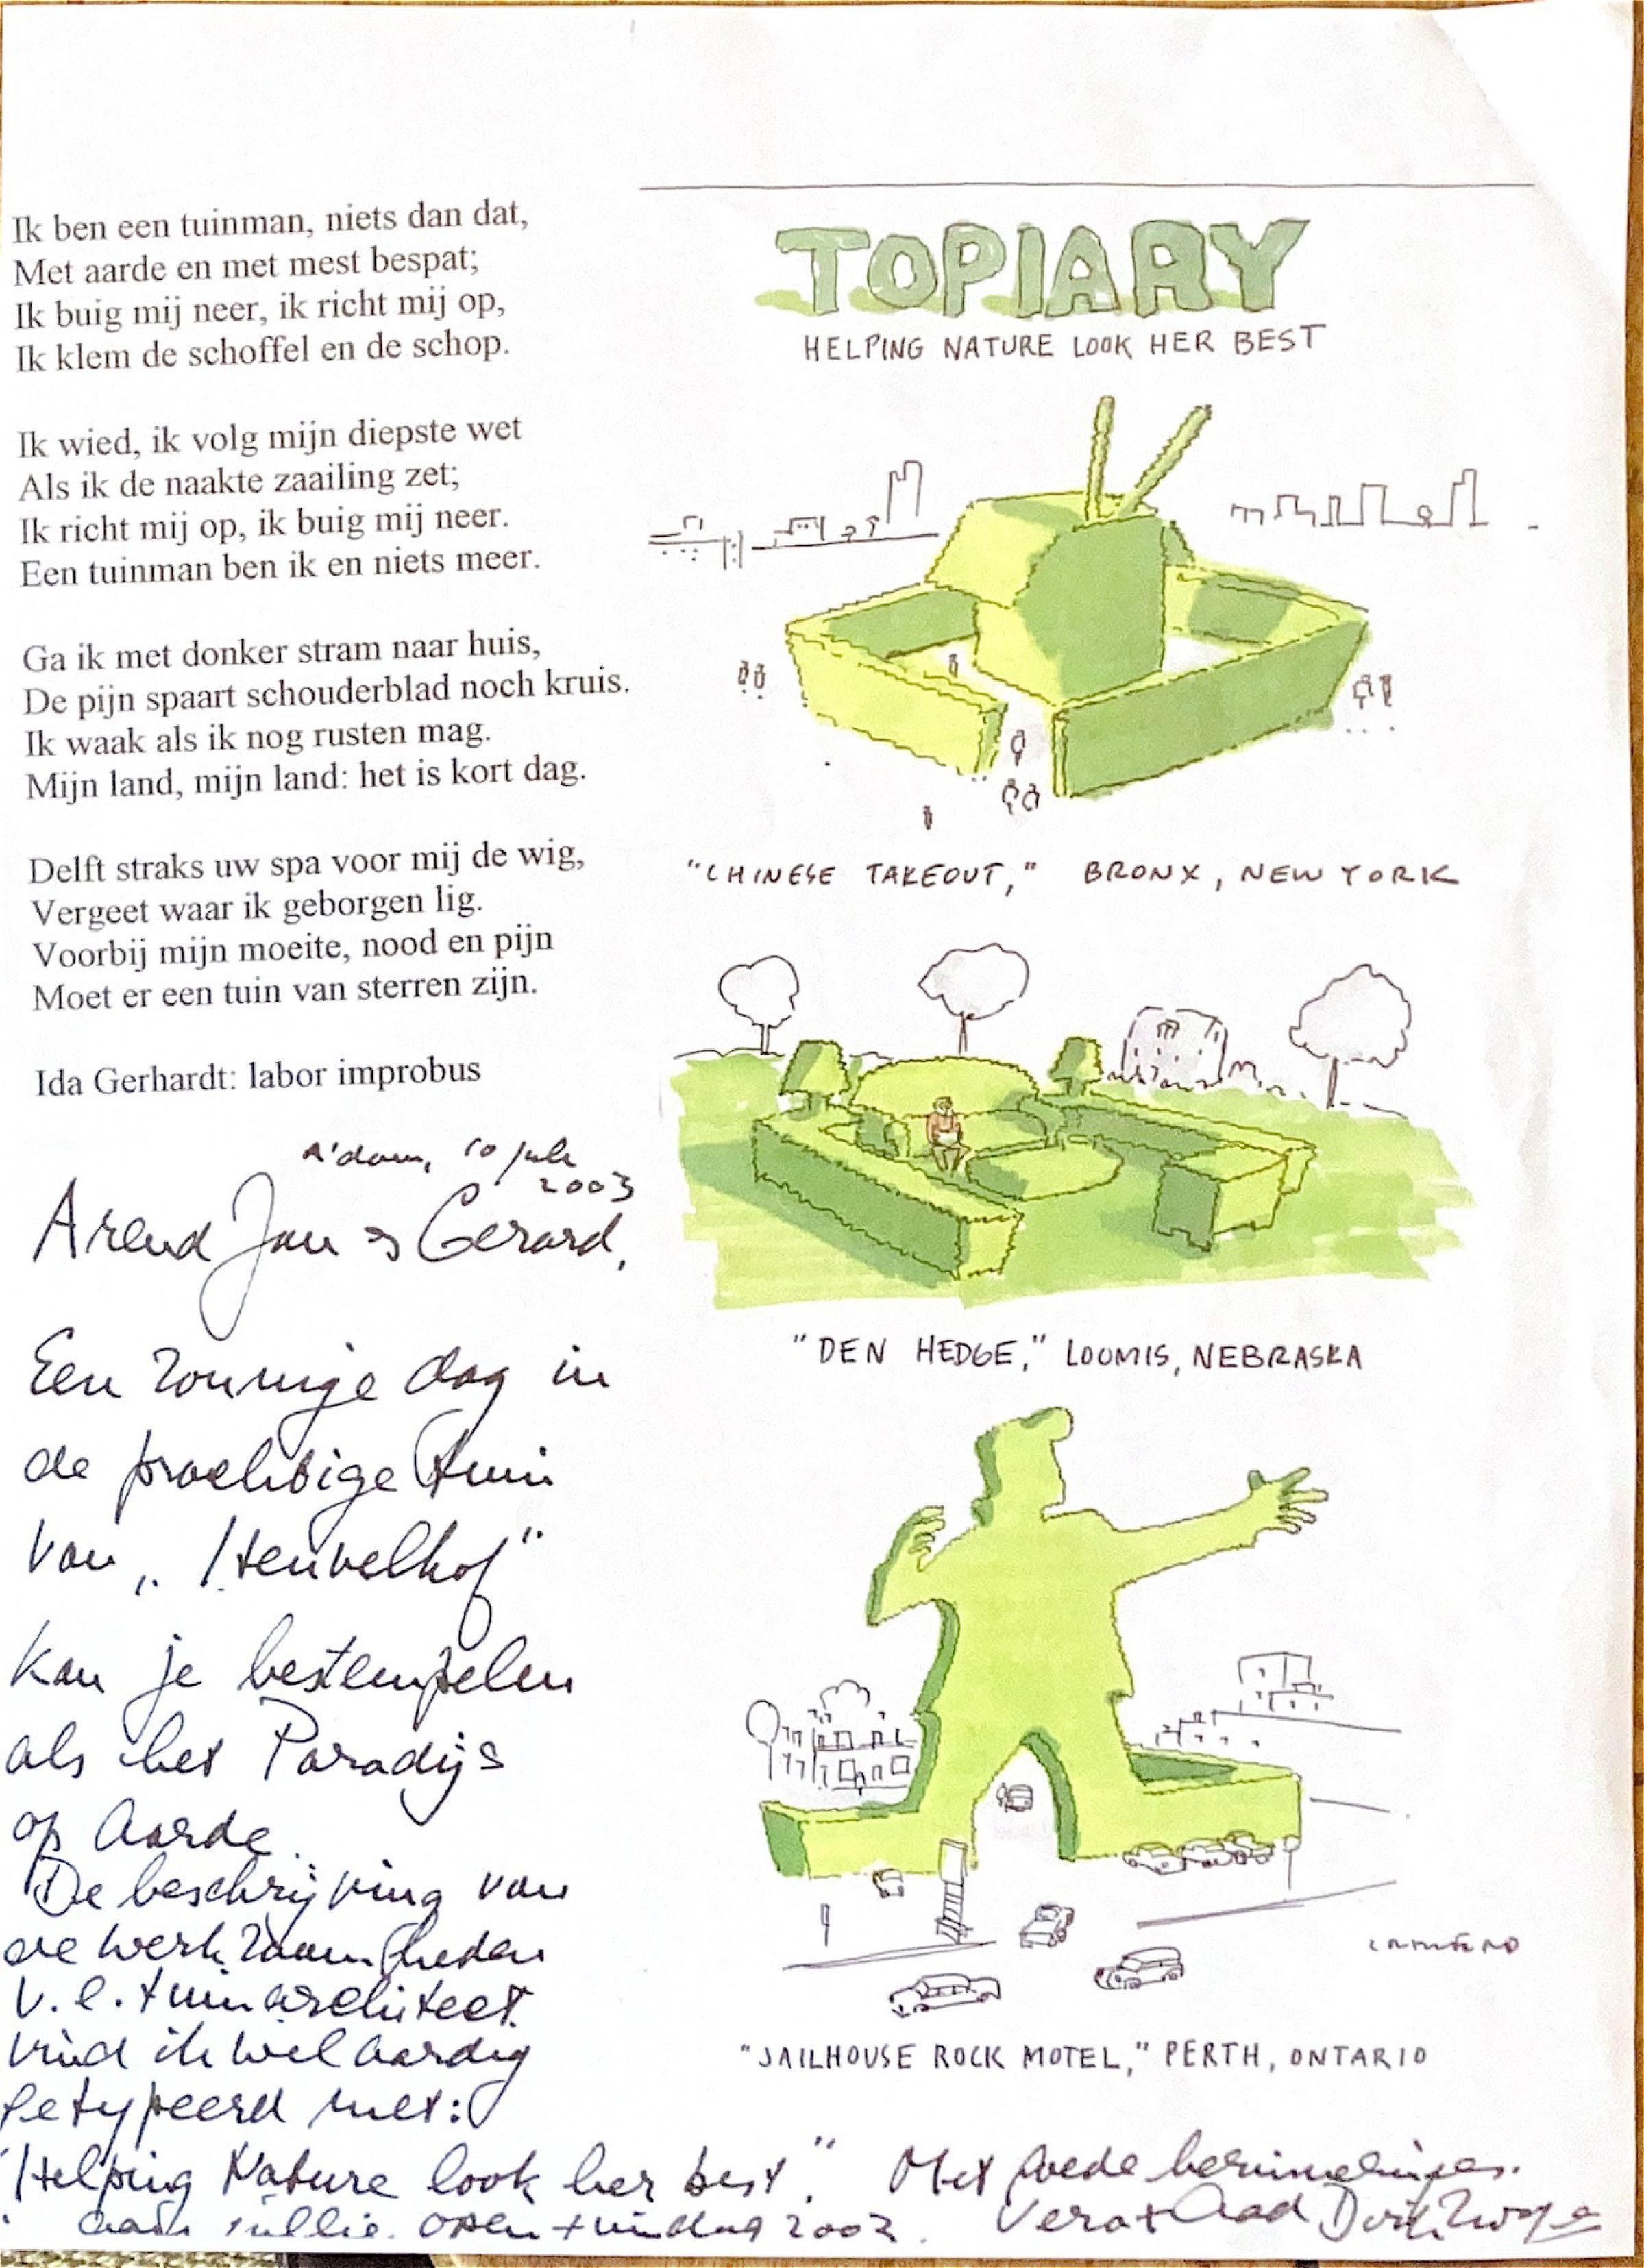 Ik ben een tuinman, niets dan dat,
Met aarde en met mest bespat;
Ik buig mij neer, ik richt mij op,
Ik klem de schoffel en de schop.
Ik wied, ik volg mijn diepste wet
Als ik de naakte zaailing zet;
Ik richt mij op, ik buig mij neer.
Een tuinman ben ik en niets meer.
Ga ik met donker stram naar huis,
De pijn spaart schouderblad noch kruis.
Ik waak als ik nog rusten mag.
Mijn land, mijn land: het is kort dag.
Delft straks uw spa voor mij de wig,
Vergeet waar ik geborgen lig.
Voorbij mijn moeite, nood en pijn
Moet er een tuin van sterren zijn.
Ida Gerhardt: labor improbus
A'dam, 10 juli
2003
Arend Jan & Gerard,
Een zonnige dag in
de prachtige tuin
van „Heuvelhof"
kan je bestempelen
als het Paradijs
op Aarde
De beschrijving van
de werkzaamheden
v.e. tuinarchitect
vind ik wel aardig
getypeerd met:
"Helping Nature look her best."
aan jullie open tuindag 2003.
Met goede herinneringen.
Vera + Aad
TOPIARY
HELPING NATURE LOOK HER BEST
"CHINESE TAKEOUT," BRONX, NEW YORK
"DEN HEDGE," LOOMIS, NEBRASKA
"JAILHOUSE ROCK MOTEL," PERTH, ONTARIO